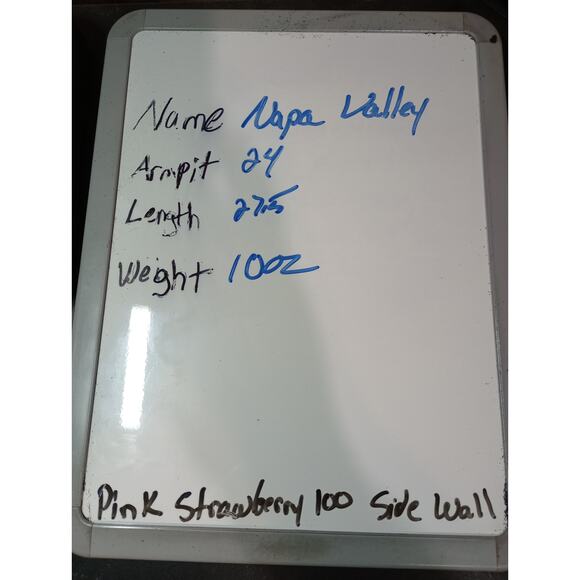 Name Napa Valley
Armpit 24
Length 27.5
Weight 10oz
Pink Strawberry 100 Side Wall